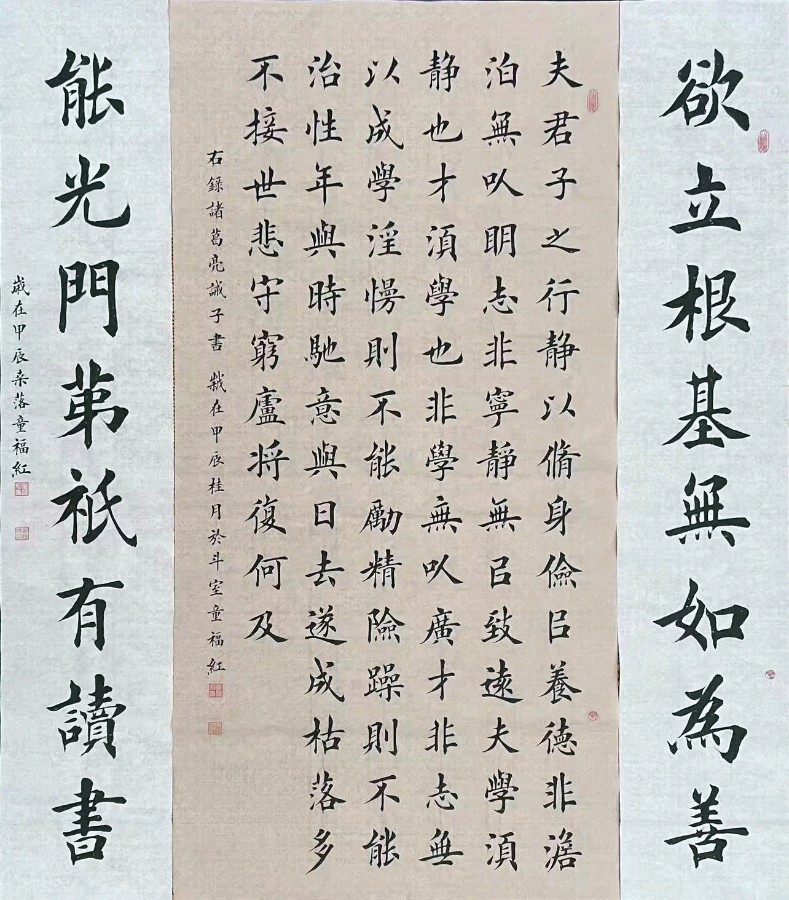 欲立根基無如為善
夫君子之行静以脩身儉㠯養德非澹
泊無㕥明志非寧静無㠯致遠夫學須
静也才須學也非學無㕥廣才非志無
以成學淫慢則不能勵精險躁則不能
治性年與時馳意與日去遂成枯落多
不接世悲守窮廬将復何及
右録諸葛亮誡子書 歲在甲辰桂月於斗室童福紅
能光門第祇有讀書
歲在甲辰桒落童福紅